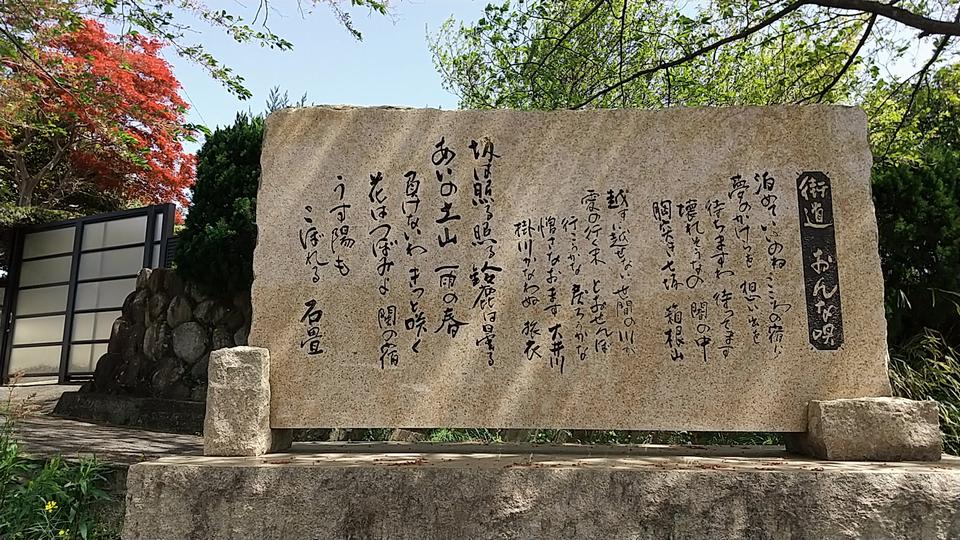 街道 おんな唄
泊めていいのね こころの宿に
夢のかけらと 想い出を
待ちますわ 待ってます
壊れそうな 闇の中
胸突き七坂 箱根山
越すに越せない 世間の川か
愛の行く末 とおせんぼ
行こうかな 戻ろうかな
憎さなおます 大井川
掛川かなわぬ 旅衣
坂は照る照る 鈴鹿は曇る
あいの土山 雨の春
負けないわ きっと咲く
花はつぼみよ 関の宿
うす陽も
こぼれる 石畳